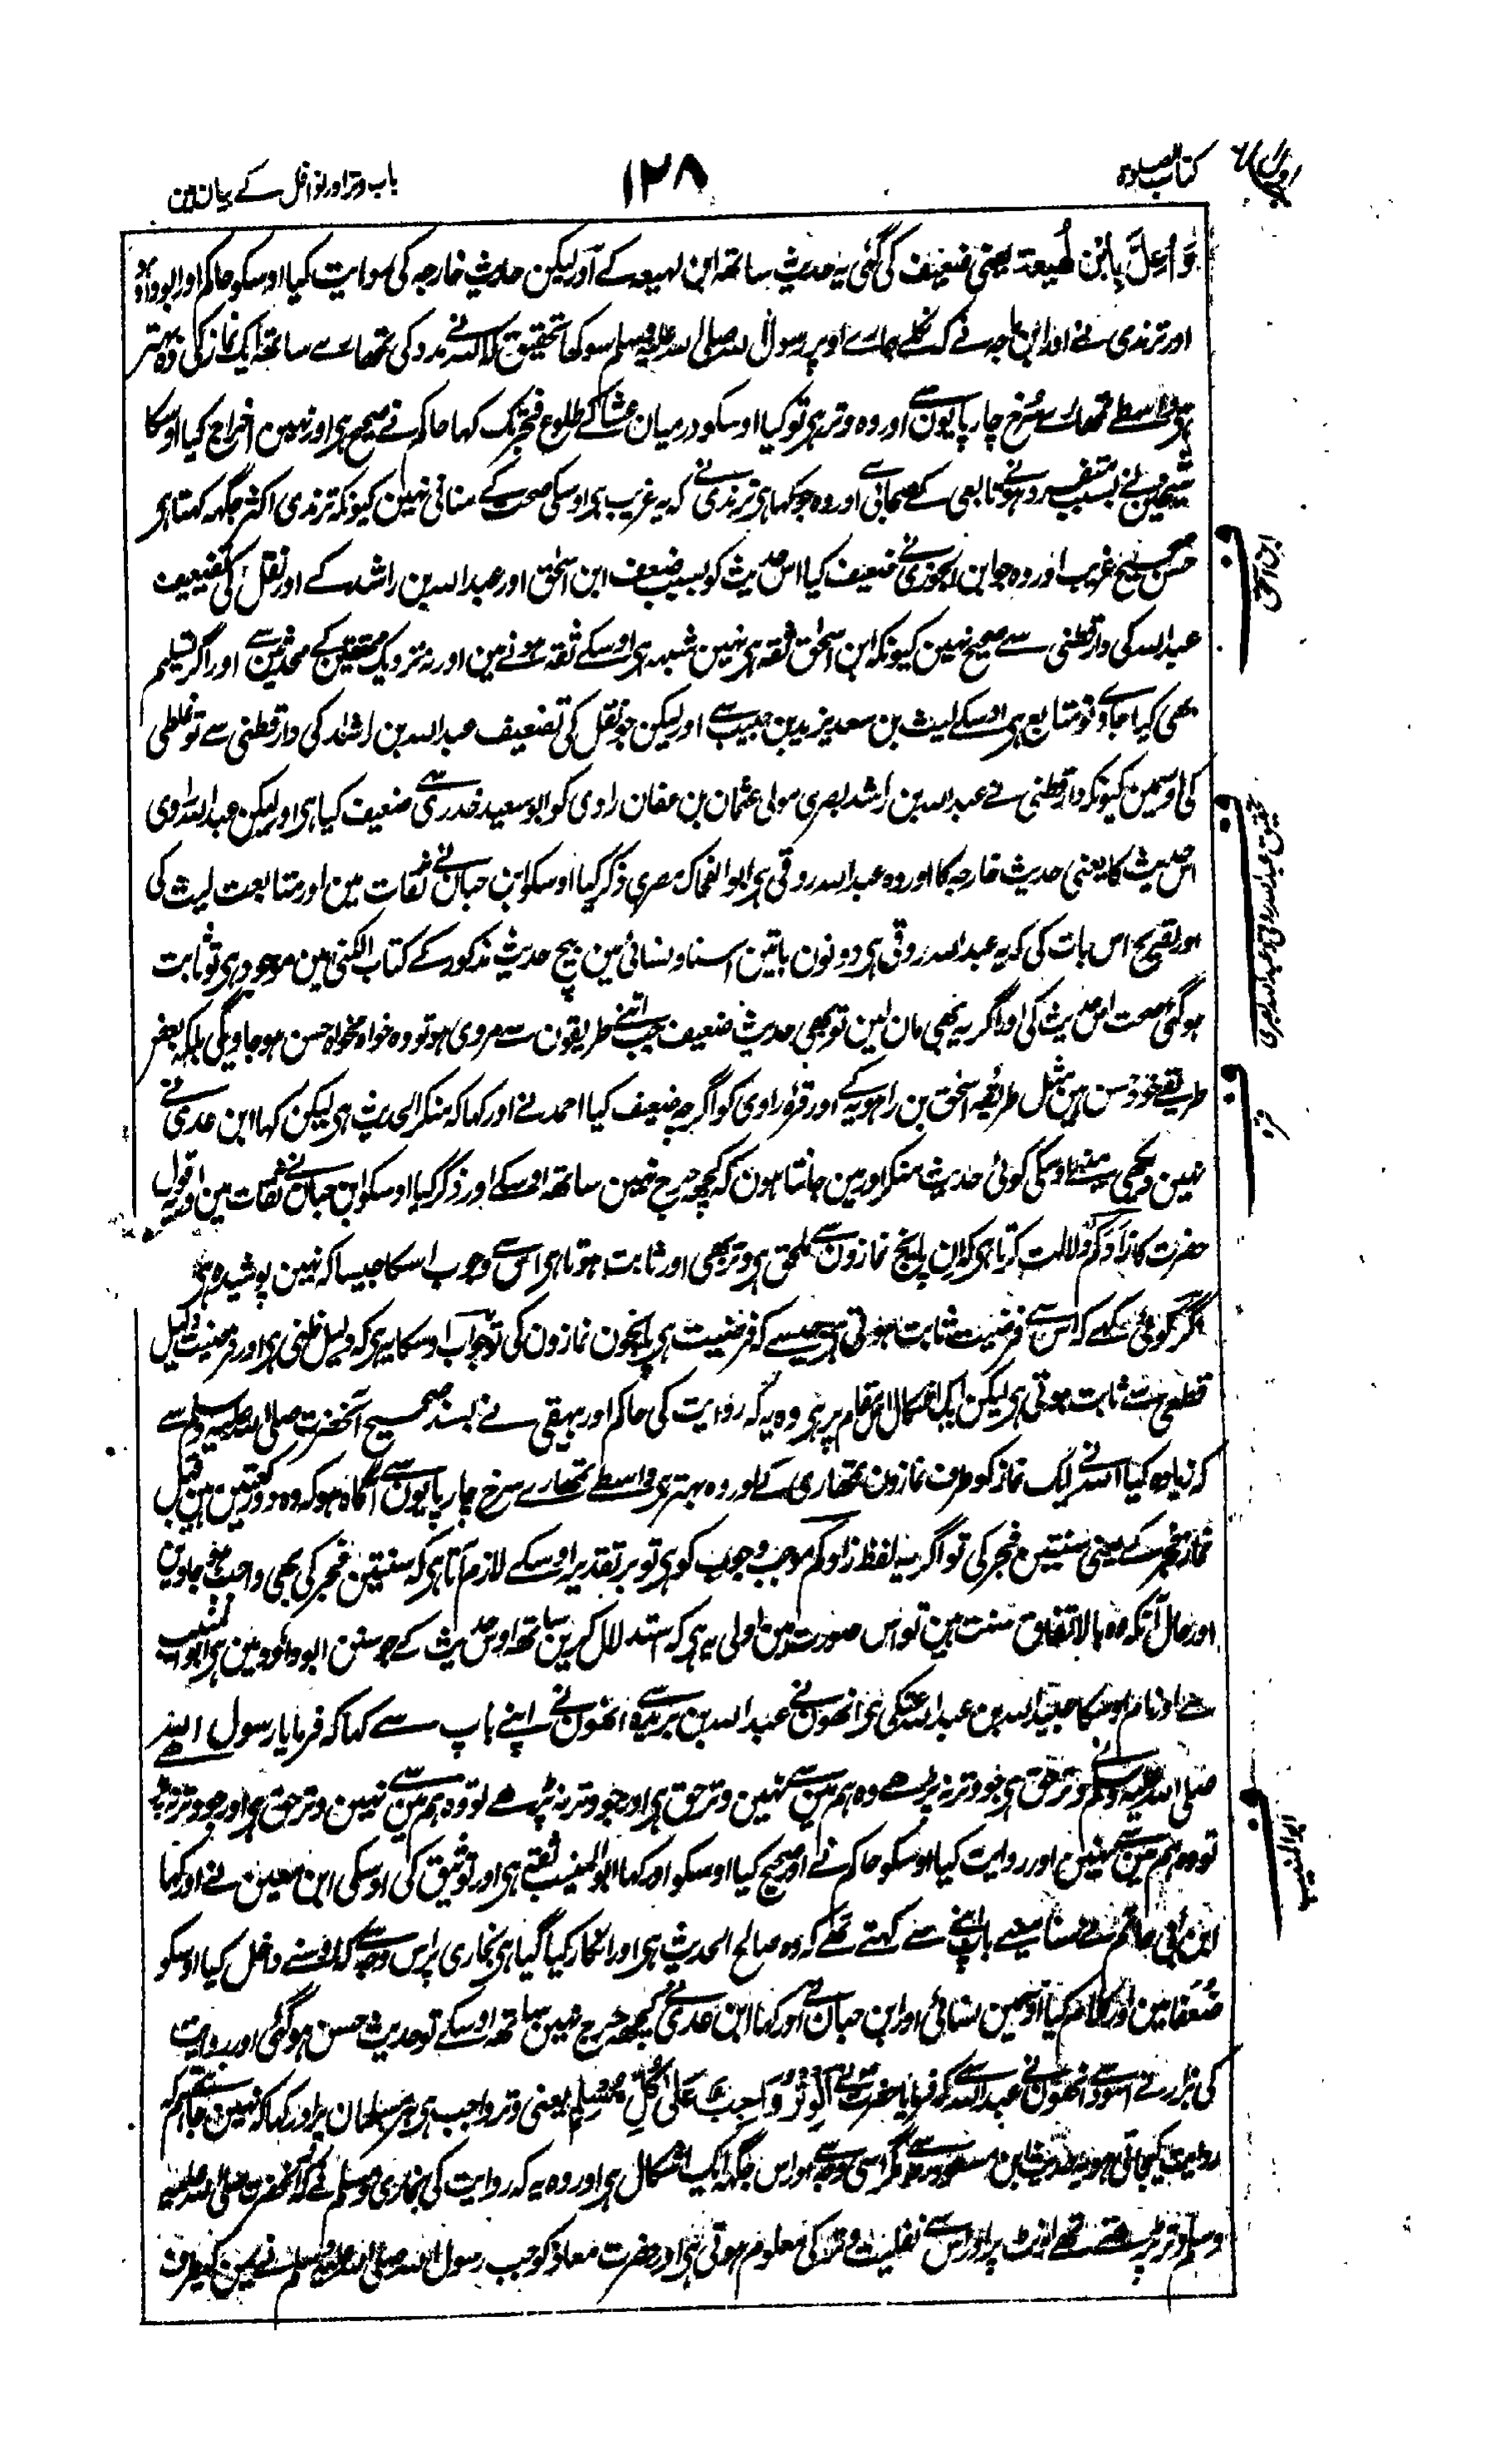 کتاب الصلوۃ
۱۲۸
باب وتر اور نوافل کے بیان مین
وَاُعِلَّ بِابْنِ لَهِيعة یعنی ضعیف کی گئی یہ حدیث ساتھ ابن لہیعہ کے اور لیکن حدیث خارجہ کی روایت کیا اوسکو حاکم اور ابوداؤد
اور ترمذی نے اور ابن ماجہ نے کہ نکلے ہمارے اوپر رسول اللہ صلی اللہ علیہ وسلم سو کہا تحقیق کہ اللہ نے مدد کی تمھارے ساتھ ایک نماز کی وہ بہتر
ہی واسطے تمھارے سُرخ چارپایون سے اور وہ وتر ہی تو کیا اوسکو درمیان عشا کے طلوع فجر تک کہا حاکم نے صحیح ہی اور نہین اخراج کیا اوسکا
شیخین نے بسبب متفرد ہونے تابعی کے صحابی سے اور وہ جو کہا ہی ترمذی نے کہ یہ غریب ہی اوسکی صحت کے منافی نہین کیونکہ ترمذی اکثر جگہہ کہتا ہی
حسن صحیح غریب اور وہ جو ابن الجوزی نے ضعیف کیا اس حدیث کو بسبب ضعف ابن اسحٰق اور عبداللہ بن راشد کے اور نقل کی تضعیف
عبداللہ کی دارقطنی سے صحیح نہین کیونکہ ابن اسحٰق ثقہ ہی نہین شبہہ ہی اوسکے ثقہ ہونے مین اور نہ نزدیک محققین کے محدثین سے اور اگر تسلیم
بھی کیا جاوے تو متابع ہی اوسکے لیث بن سعد یزید بن حبیب سے اور لیکن جو نقل کی تضعیف عبداللہ بن راشد کی دارقطنی سے تو غلطی
کی اوسمین کیونکہ دارقطنی نے عبداللہ بن راشد بصری مولی عثمان بن عفان راوی کو ابو سعید خدری سے ضعیف کیا ہی اور لیکن عبداللہ راوی
اس حدیث کا یعنی حدیث خارجہ کا اور وہ عبداللہ زوقی ہی ابو الضحاک مصری ذکر کیا اوسکو ابن حبان نے ثقات مین اور متابعت لیث کی
اور تصریح اس بات کی کہ یہ عبداللہ زوقی ہی دونون باتین اسناد نسائی مین بیچ حدیث مذکور کے کتاب الکنی مین موجود ہی تو ثابت
ہو گئی صحت اس حدیث کی اور اگر یہ بھی مان لین تو بھی حدیث ضعیف جب اتنے طریقون سے مروی ہو تو وہ خواہ مخواہ حسن ہو جاویگی بلکہ بعض
طریقے خود حسن ہین مثل طریقہ اسحٰق بن راہویہ کے اور قرۃ راوی کو اگرچہ ضعیف کیا احمد نے اور کہا کہ منکر الحدیث ہی لیکن کہا ابن عدی نے
نہین دیکھی مینے اوسکی کوئی حدیث منکر اور مین جانتا ہون کہ کچھ حرج نہین ساتھ اوسکے اور ذکر کیا اوسکو ابن حبان نے ثقات مین اور یہ قول
حضرت کا زَادَکُم دلالت کرتا ہی کہ ان پانچ نمازون سے ملحق ہی وتر بھی اور ثابت ہوتا ہی اس سے وجوب اسکا جیسا کہ نہین پوشیدہ ہی
اگر کوئی کہے کہ اس سے فرضیت ثابت ہوتی ہی جیسے کہ فرضیت ہی پانچون نمازون کی تو جواب اوسکا یہ ہی کہ دلیل ظنی ہی اور فرضیت دلیل
قطعی سے ثابت ہوتی ہی لیکن ایک اشکال اس مقام پر ہی وہ یہ کہ روایت کی حاکم اور بیہقی نے بسند صحیح آنحضرت صلی اللہ علیہ وسلم سے
کہ زیادہ کیا اللہ نے ایک نماز کو طرف نمازون تمھاری کے اور وہ بہتر ہی واسطے تمھارے سرخ چارپایون سے آگاہ ہو کہ وہ دو رکعتین ہین قبل
نماز فجر کے یعنی سنتین فجر کی تو اگر یہ لفظ زادکم موجب وجوب کو ہی تو بر تقدیر اوسکے لازم آتا ہی کہ سنتین فجر کی بھی واجب ہو جاوین
اور حال آنکہ وہ بالاتفاق سنت ہین تو اس صورت مین اولی یہ ہی کہ استدلال کرین ساتھ اوس حدیث کے جو سنن ابو داؤد مین ہی ابو المنیب
سے اور نام اوسکا عبیداللہ بن عبداللہ عتکی ہی انھون نے عبداللہ بن بریدہ سے انھون نے اپنے باپ سے کہا کہ فرمایا رسول اللہ
صلی اللہ علیہ وسلم نے وتر حق ہی جو وتر نہ پڑھے وہ ہم مین سے نہین وتر حق ہی اور جو وتر نہ پڑھے تو وہ ہم مین سے نہین وتر حق ہی اور جو وتر نہ پڑھے
تو وہ ہم مین سے نہین اور روایت کیا اوسکو حاکم نے اور صحیح کیا اوسکو اور کہا ابو المنیب ثقہ ہی اور توثیق کی اوسکی ابن معین نے اور کہا
ابن ابی حاتم نے سنا مینے باپ اپنے سے کہتے تھے کہ وہ صالح الحدیث ہی اور انکار کیا گیا ہی بخاری پر اس وجہ سے کہ اوسنے داخل کیا اوسکو
ضُعَفا مین اور کلام کیا اوسمین نسائی اور ابن حبان نے اور کہا ابن عدی نے کچھ حرج نہین ساتھ اوسکے تو حدیث حسن ہو گئی اور روایت
کی بزار نے اسود سے انھون نے عبداللہ سے کہ فرمایا حضرت نے اَلْوِتْرُ وَاجِبٌ عَلَى كُلِّ مُسْلِمٍ یعنی وتر واجب ہی ہر مسلمان پر اور کہا کہ نہین جانتے ہم کہ
روایت کیجاتی ہو یہ حدیث ابن مسعود سے مگر اسی وجہ سے ہو اس جگہہ ایک اشکال ہی اور وہ یہ کہ روایت کی بخاری و مسلم نے کہ آنحضرت صلی اللہ علیہ
وسلم وتر پڑھتے تھے اونٹ پر اور اس سے نفلیت وتر کی معلوم ہوتی ہی اور حضرت معاذ کو جب رسول اللہ صلی اللہ علیہ وسلم نے یمن کیطرف
ابن اسحٰق
قرۃ